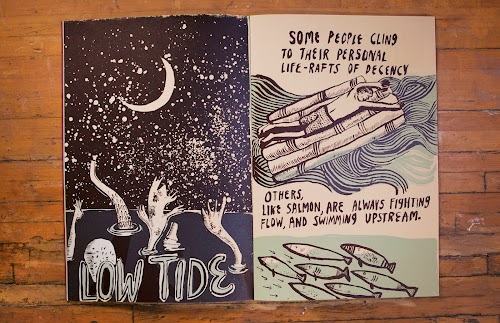 LOW TIDE
SOME PEOPLE CLING
TO THEIR PERSONAL
LIFE-RAFTS OF DECENCY
OTHERS,
LIKE SALMON, ARE ALWAYS FIGHTING
FLOW, AND SWIMMING UPSTREAM.